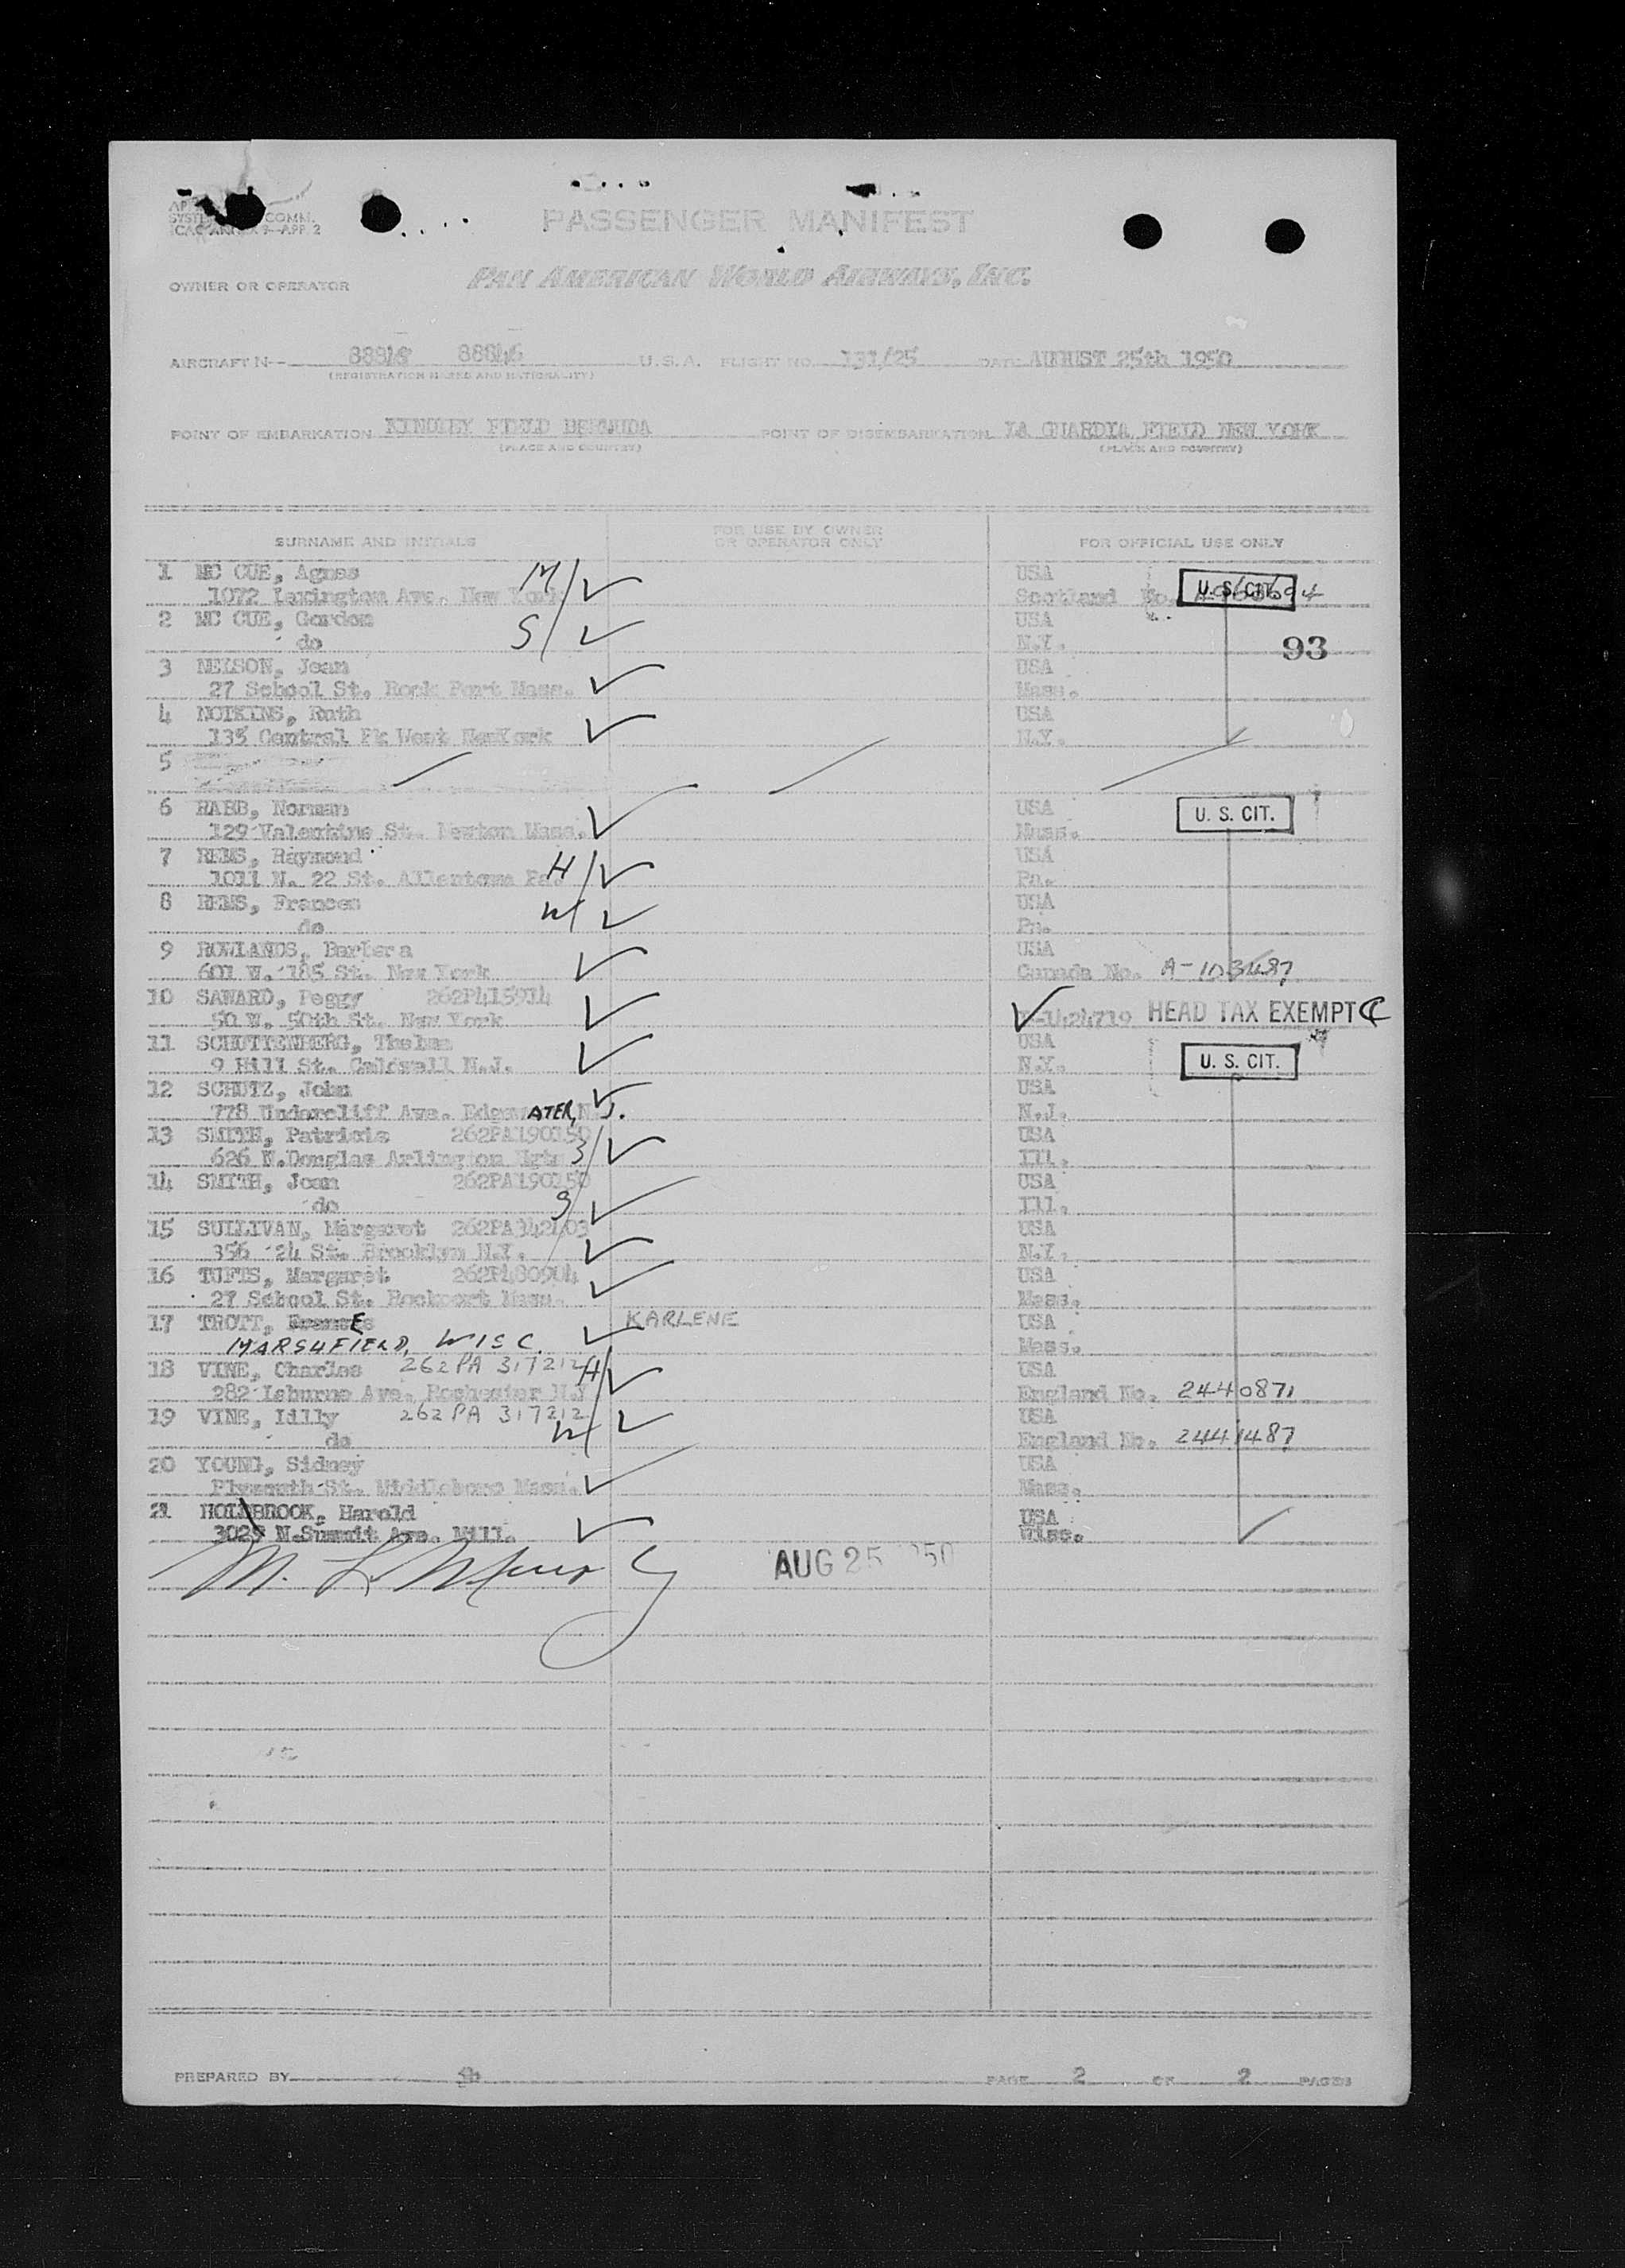 COMM.
9—APP. 2
PASSENGER MANIFEST
OWNER OR OPERATOR PAN AMERICAN WORLD AIRWAYS, INC.
AIRCRAFT N— U.S.A. FLIGHT NO. 131/25 DATE AUGUST 25th 1950
(REGISTRATION MARKS AND NATIONALITY)
POINT OF EMBARKATION KINDLEY FIELD BERMUDA POINT OF DISEMBARKATION LA GUARDIA FIELD NEW YORK
(PLACE AND COUNTRY) (PLACE AND COUNTRY)
SURNAME AND INITIALS FOR USE BY OWNER OR OPERATOR ONLY FOR OFFICIAL USE ONLY
1 MC CUE, Agnes M USA U. S. CIT.
1072 Lexington Ave. New York Scotland No.
2 MC CUE, Gordon S USA
do N.Y. 93
3 NELSON, Jean USA
27 School St. Rock Port Mass. Mass.
4 NOTKINS, Ruth USA
135 Central Pk West NewYork N.Y.
5
6 RABB, Norman USA U. S. CIT.
129 Valentine St. Newton Mass. Mass.
7 REMS, Raymond H USA
1011 N. 22 St. Allentown Pa. Pa.
8 REMS, Frances W USA
do Pa.
9 ROWLANDS, Barbara USA
601 W. 185 St. New York Canada No. A-103487
10 SAWARD, Peggy 262P415914
50 W. 50th St. New York -1424719 HEAD TAX EXEMPT
11 SCHUTTENBERG, Thelma USA
9 Hill St. Caldwell N.J. N.Y. U. S. CIT.
12 SCHUTZ, John USA
778 Undercliff Ave. EdgewATER, N.J. N.J.
13 SMITH, Patricia 262PA190150 USA
626 N.Douglas Arlington Hgts Ill.
14 SMITH, Joan 262PA190150 USA
do Ill.
15 SULLIVAN, Margaret 262PA342403 USA
356 24 St. Brooklyn N.Y. N.Y.
16 TUFTS, Margaret 262P480904 USA
27 School St. Rockport Mass. Mass.
17 TROTT, KARLENE USA
MARSHFIELD, WISC. Mass.
18 VINE, Charles 262PA 317212 H USA
282 Ave. Rochester N.Y. England No. 2440871
19 VINE, Lilly 262PA 317212 W USA
do England No. 2441487
20 YOUNG, Sidney USA
Plymouth St. Middleboro Mass. Mass.
21 HOLBROOK, Harold USA
3029 N.Summit Ave. Mill. Wisc.
AUG 25 1950
PREPARED BY PAGE 2 OF 2 PAGES